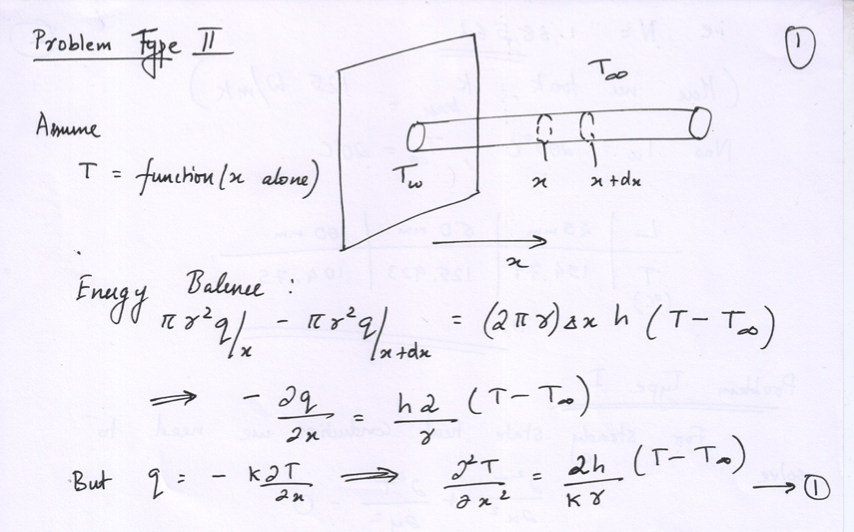 Problem Type II
①
T∞
Assume
T = function(x alone)
Tw
x
x+dx
x
Energy Balance :
πr²q|x − πr²q|x+dx = (2πr)Δx h (T − T∞)
⟹ − ∂q/∂x = h2/r (T − T∞)
But q = − K∂T/∂x ⟹ ∂²T/∂x² = 2h/Kr (T − T∞) → ①